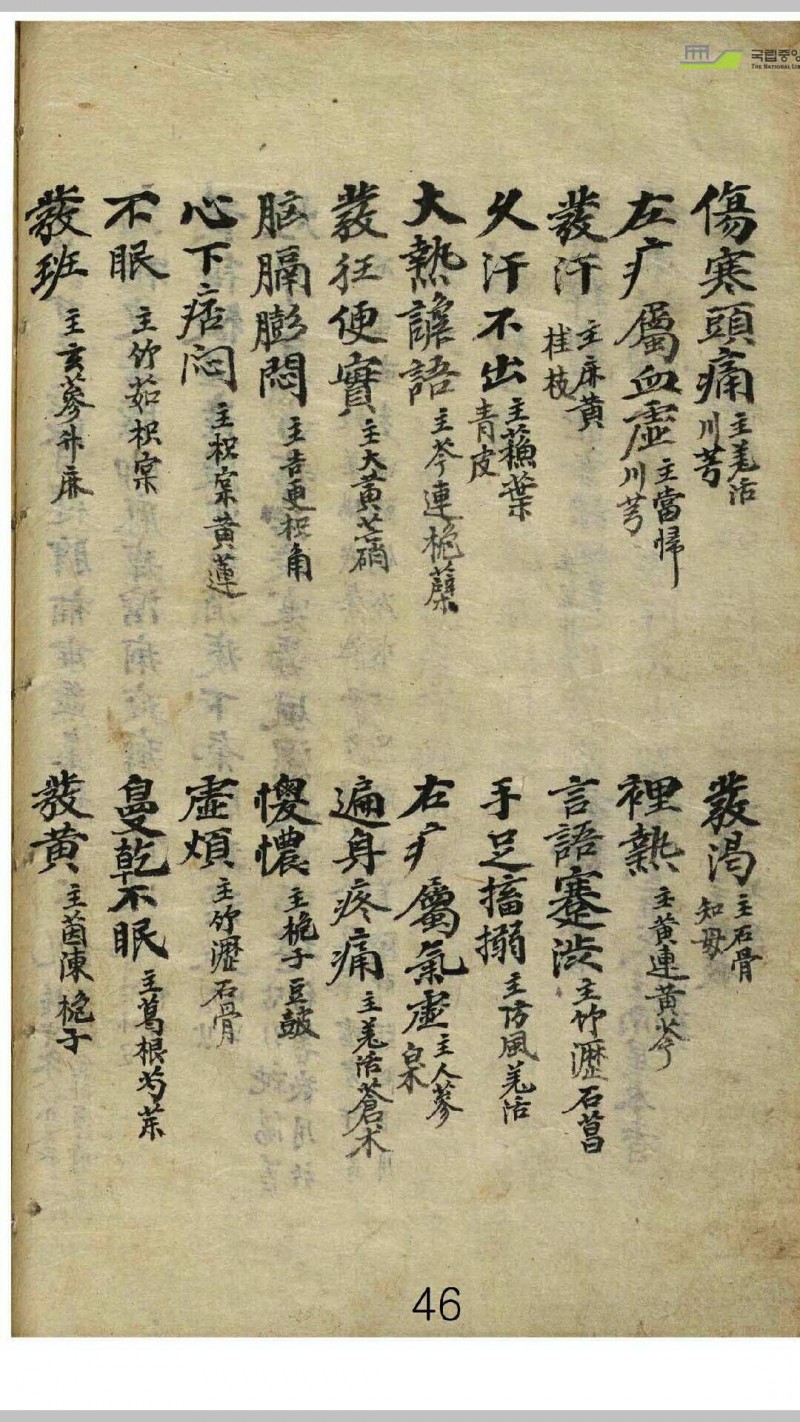 국립중앙
THE NATIONAL LIB
傷寒頭痛 主羌活 川芎
發渴 主石膏 知母
左疒屬血虛 主當歸 川芎
裡熱 主黃連黃芩
發汗 主麻黃 桂枝
言語蹇澁 主竹瀝石菖
久汗不出 主蘓葉 青皮
手足搐搦 主防風羌活
大熱譫語 主芩連梔蘗
右疒屬氣虛 主人蔘 白朮
發狂便實 主大黃芒硝
遍身疼痛 主羌活蒼朮
脑膈膨悶 主吉更枳角
懊憹 主梔子豆豉
心下痞悶 主枳宲黃蓮
虛煩 主竹瀝石膏
不眠 主竹茹枳宲
鼻乾不眠 主葛根芍荣
發班 主玄蔘升麻
發黃 主茵陳梔子
46